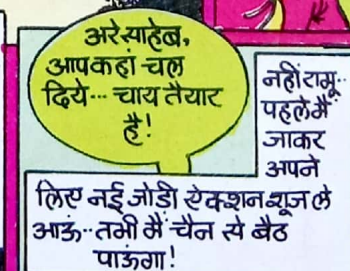 अरे साहेब,
आप कहां चल
दिये... चाय तैयार
है!
नहीं रामू..
पहले मैं
जाकर
अपने
लिए नई जोडी ऐक्शन शूज ले
आऊं.. तभी मैं चैन से बैठ
पाऊंगा!